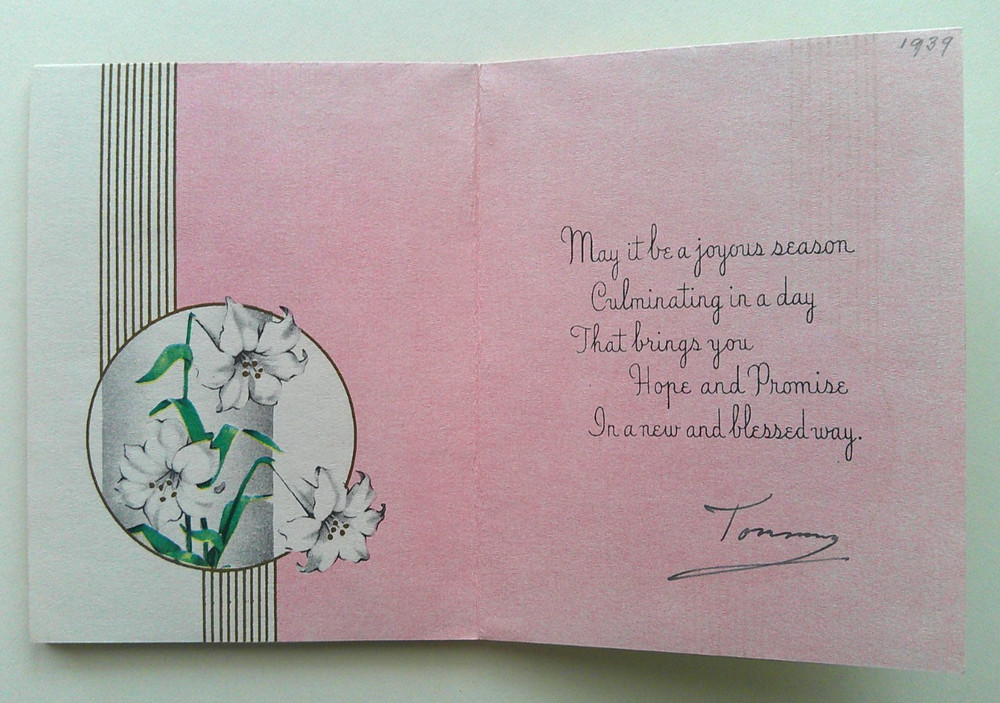 1939
May it be a joyous season
Culminating in a day
That brings you
Hope and Promise
In a new and blessed way.
Tommy